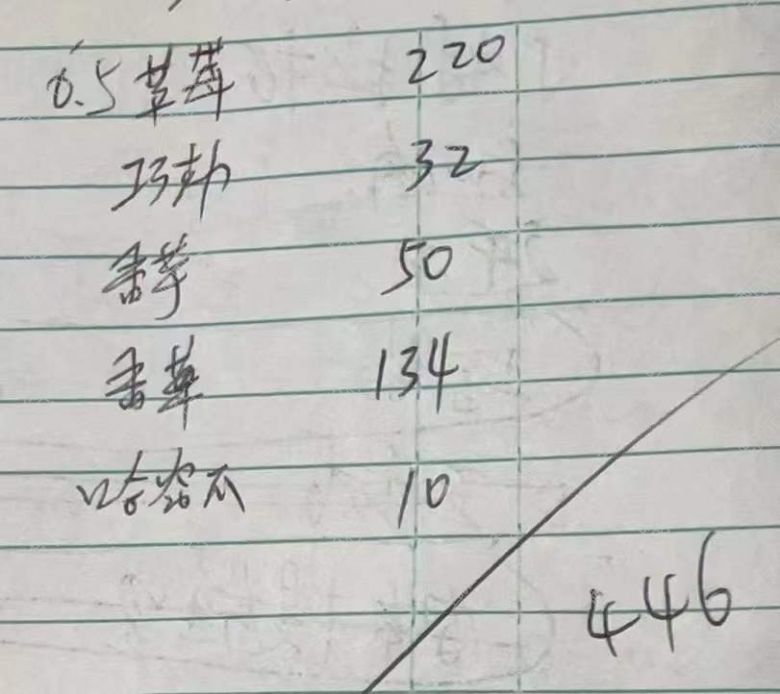 0.5草莓 220
巧劝 32
香芋 50
香草 134
哈密瓜 10
446